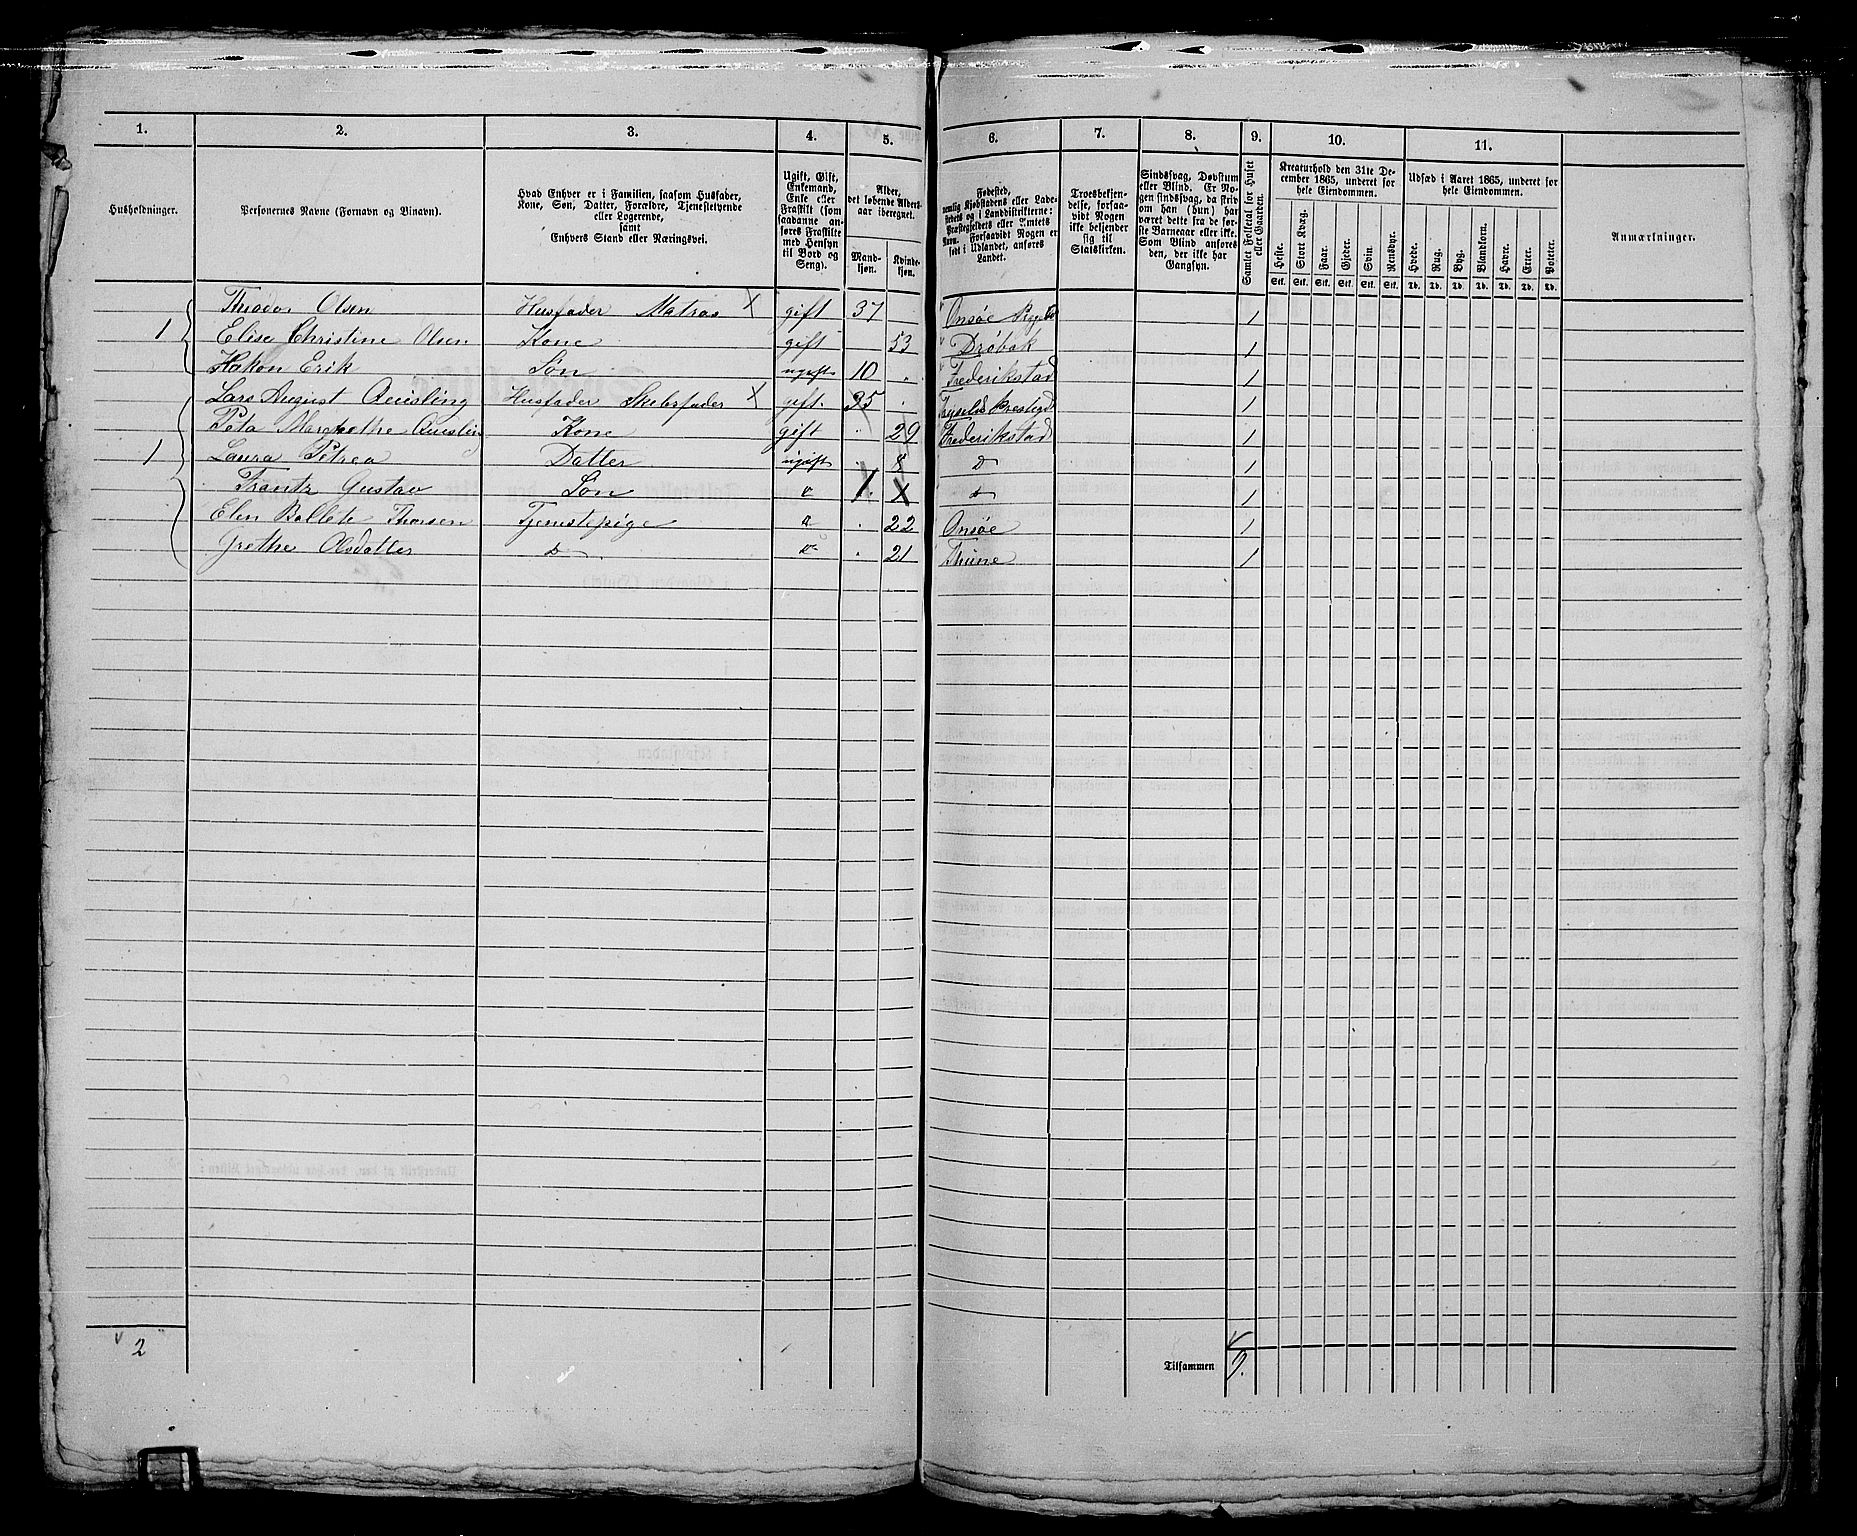 1. 2. 3. 4. 5. 6. 7. 8. 9. 10. 11.
Husholdninger.
Personernes Navne (Fornavn og Binavn).
Hvad Enhver er i Familien, saasom Husfader,
Kone, Søn, Datter, Forældre, Tjenestetyende
eller Logerende,
samt
Enhvers Stand eller Næringsvei.
Ugift, Gift,
Enkemand,
Enke eller
Fraskilt (som
saadanne an-
føres Fraskilte
med Hensyn
til Bord og
Seng).
Alder,
det løbende Alders-
aar iberegnet.
Mand-
kjøn.
Kvinde-
kjøn.
Fødested,
nemlig Kjøbstadens eller Lade-
stedets og i Landdistrikterne:
Præstegjeldets eller Amtets
Navn. Forsaavidt Nogen er
født i Udlandet, anføres
Landet.
Troesbekjen-
delse, forsaa-
vidt Nogen
ikke bekjender
sig til
Statskirken.
Sindssvag, Døvstum
eller Blind. Er No-
gen sindssvag, da skriv
om han (hun) har
været dette fra de før-
ste Barneaar eller ikke.
Som Blind anføres
den, der ikke har
Gangsyn.
Samlet Folketal for Huset
eller Gaarden.
Kreaturhold den 31te De-
cember 1865, underet for
hele Eiendommen.
Heste. Stort Kvæg. Faar. Gjeder. Svin. Rensdyr.
Stk. Stk. Stk. Stk. Stk. Stk.
Udsæd i Aaret 1865, underet for
hele Eiendommen.
Hvede. Rug. Byg. Blandkorn. Havre. Erter. Poteter.
Td. Td. Td. Td. Td. Td. Td.
Anmærkninger.
Theodor Olsen Husfader Matros X gift 37 Onsøe 1
1 Elise Christine Olsen Kone gift 53 Drøbak 1
Hakon Erik Søn ugift 10 Frederikstad 1
Lars August Quisling Husfader X gift 35 1
Margrethe Kone gift 29 Frederikstad 1
1 Laura Petrea Datter ugift 8 D 1
Frantz Gustav Søn 1 X 1
Elen Thorsen Tjenestepige 22 Onsøe 1
Grethe Olsdatter D 21 Thune 1
2
Tilsammen 9.